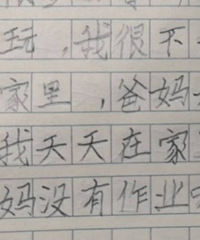 玩，我很不
家里，爸妈
我天天在家
妈没有作业